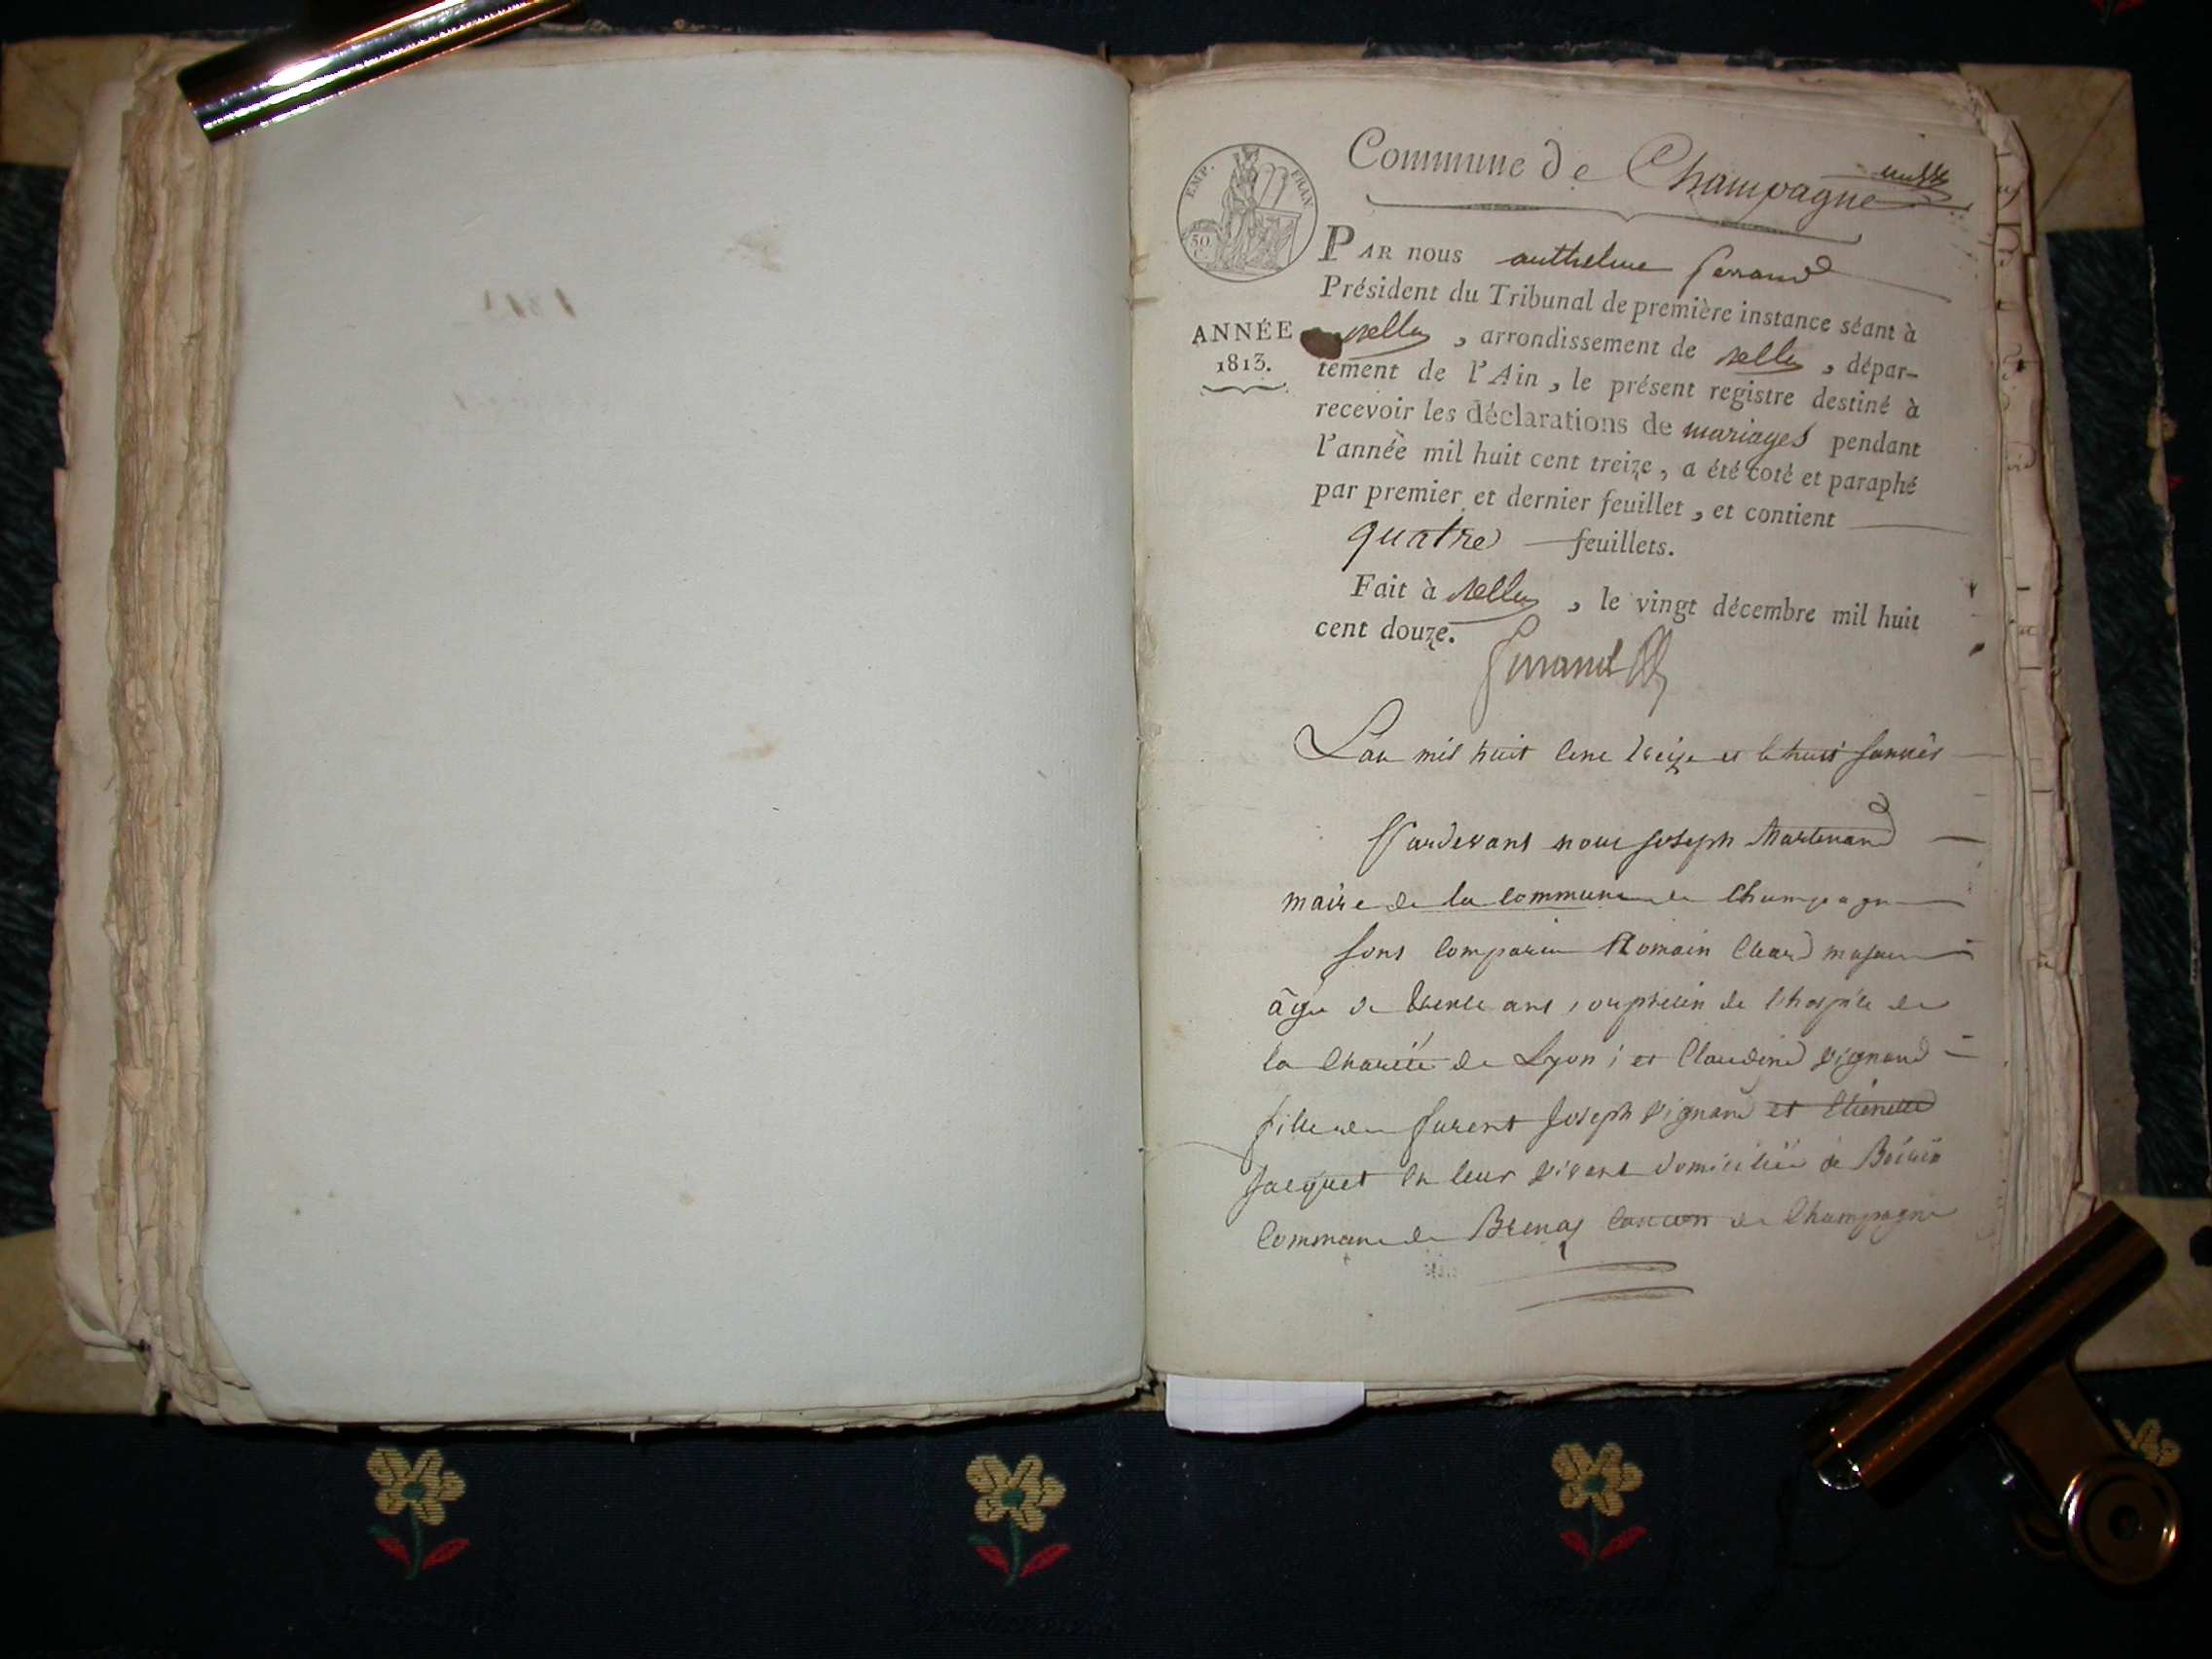 Commune de Champagne
EMP. FRAN
50 C.
ANNÉE
1813.
PAR nous anthelme ferrand
Président du Tribunal de première instance séant à
belley, arrondissement de belley, dépar-
tement de l'Ain, le présent registre destiné à
recevoir les déclarations de mariages pendant
l'année mil huit cent treize, a été coté et paraphé
par premier et dernier feuillet, et contient
quatre feuillets.
Fait à belley, le vingt décembre mil huit
cent douze.
ferrand
L'an mil huit cent treize et le huit janvier
Pardevant nous joseph Martenand
maire de la commune de Champagne
sont comparu Romain Cluard
âgé de trente ans, orphelin de l'hospice de
la Charité de Lyon; et Claudine Vignand
fille de furent joseph Vignand et Etiennette
jacquet en leur vivant domicilié à
Commune de Brenas canton de Champagne